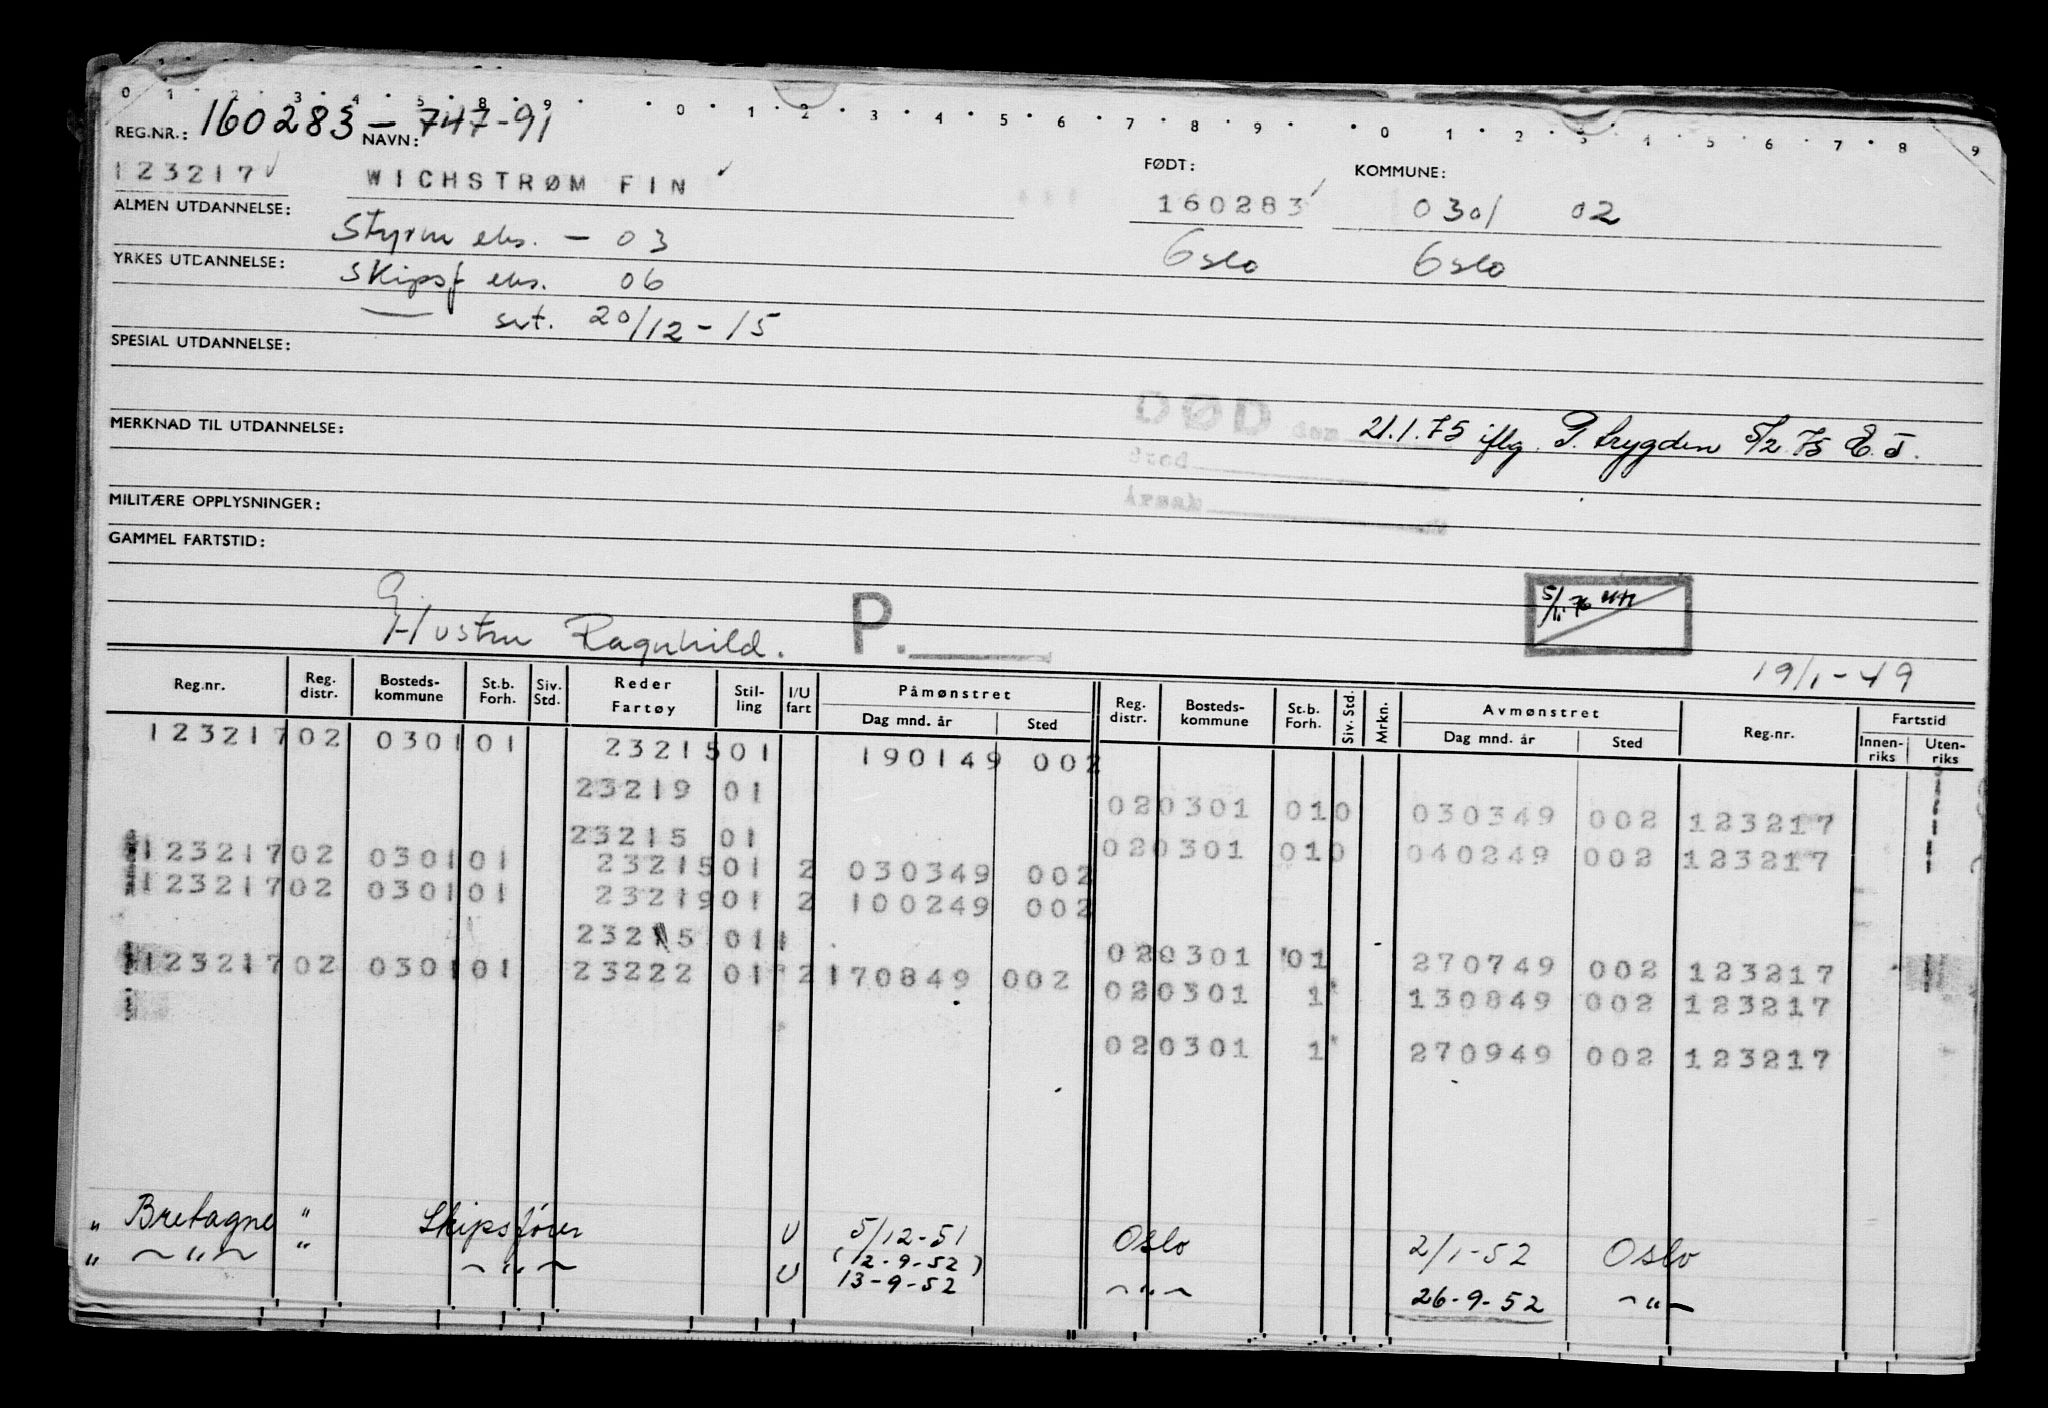 0 1 2 3 4 5 8 9 0 1 2 3 4 5 6 7 8 9 0 1 2 3 4 5 6 7 8 9
REG.NR.: 160283 - 747-91
NAVN:
FØDT: KOMMUNE:
123217 WICHSTRØM FIN 160283 0301 02
ALMEN UTDANNELSE: Styrm eks. - 03 Oslo Oslo
YRKES UTDANNELSE: Skipsf eks. 06
srt. 20/12-15
SPESIAL UTDANNELSE:
DØD den 21.1.75 iflg. P. trygden 5/2 75 E.J.
MERKNAD TIL UTDANNELSE:
Sted
Årsak
MILITÆRE OPPLYSNINGER:
GAMMEL FARTSTID:
5/11 76
G/Hustru Ragnhild. P.
19/1-49
Reg.nr. Reg. distr. Bosteds-kommune St.b. Forh. Siv. Std. Reder Fartøy Stil-ling I/U fart Påmønstret Dag mnd. år Sted Reg. distr. Bosteds-kommune St.b. Forh. Siv. Std. Mrkn. Avmønstret Dag mnd. år Sted Reg.nr. Fartstid Innen-riks Uten-riks
123217 02 0301 01 23215 01 190149 002
23219 01 02 0301 01 0 030349 002 123217
23215 01 02 0301 01 0 040249 002 123217
123217 02 0301 01 23215 01 2 030349 002
123217 02 0301 01 23219 01 2 100249 002
23215 01 1 02 0301 01 270749 002 123217
123217 02 0301 01 23222 01 2 170849 002
02 0301 1 130849 002 123217
02 0301 1 270949 002 123217
" Bretagne " Skipsfører U 5/12-51 Oslo 2/1-52 Oslo
(12-9-52)
" ~ " ~ " ~ " ~ U 13-9-52 ~ " ~ 26-9-52 ~ " ~